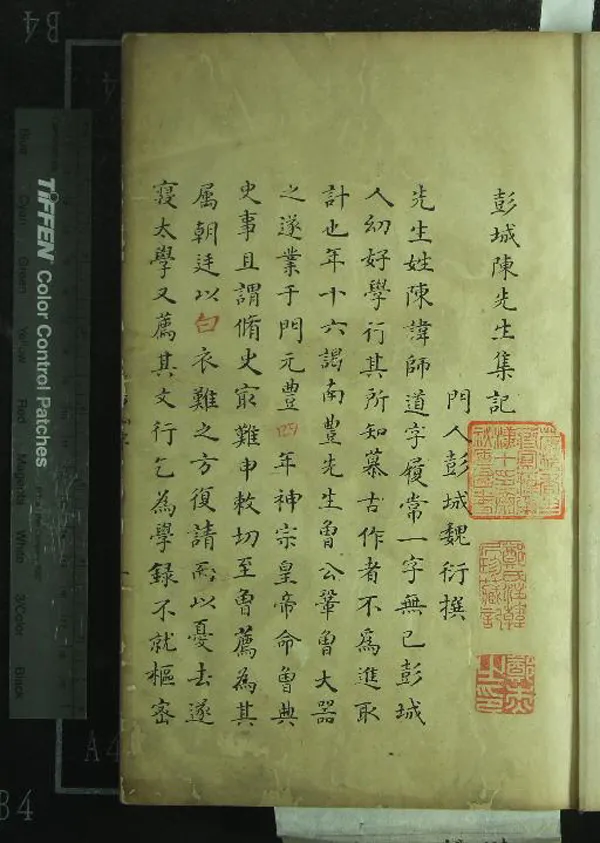 彭城陳先生集記
門人彭城魏衍撰
先生姓陳諱師道字履常一字無己彭城
人幼好學行其所知慕古作者不為進取
計也年十六謁南豐先生魯公鞏魯大器
之遂業于門元豐四年神宗皇帝命魯典
史事且謂脩史㝡難申敕切至魯薦為其
属朝廷以白衣難之方復請而以憂去遂
寢太學又薦其文行乞為學録不就樞密
鄭氏注韓居珍藏記
鄭杰之印
TIFFEN Color Control Patches
Blue Cyan Green Yellow Red Magenta White 3/Color Black
B4
A4
B4